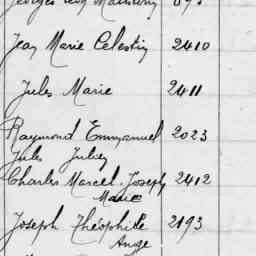 Jean Marie Célestin 2410
Jules Marie 2411
Raymond Emmanuel 2023
Jules Julien
Charles Marcel Joseph 2412
Marie
Joseph Théophile 2193
Ange